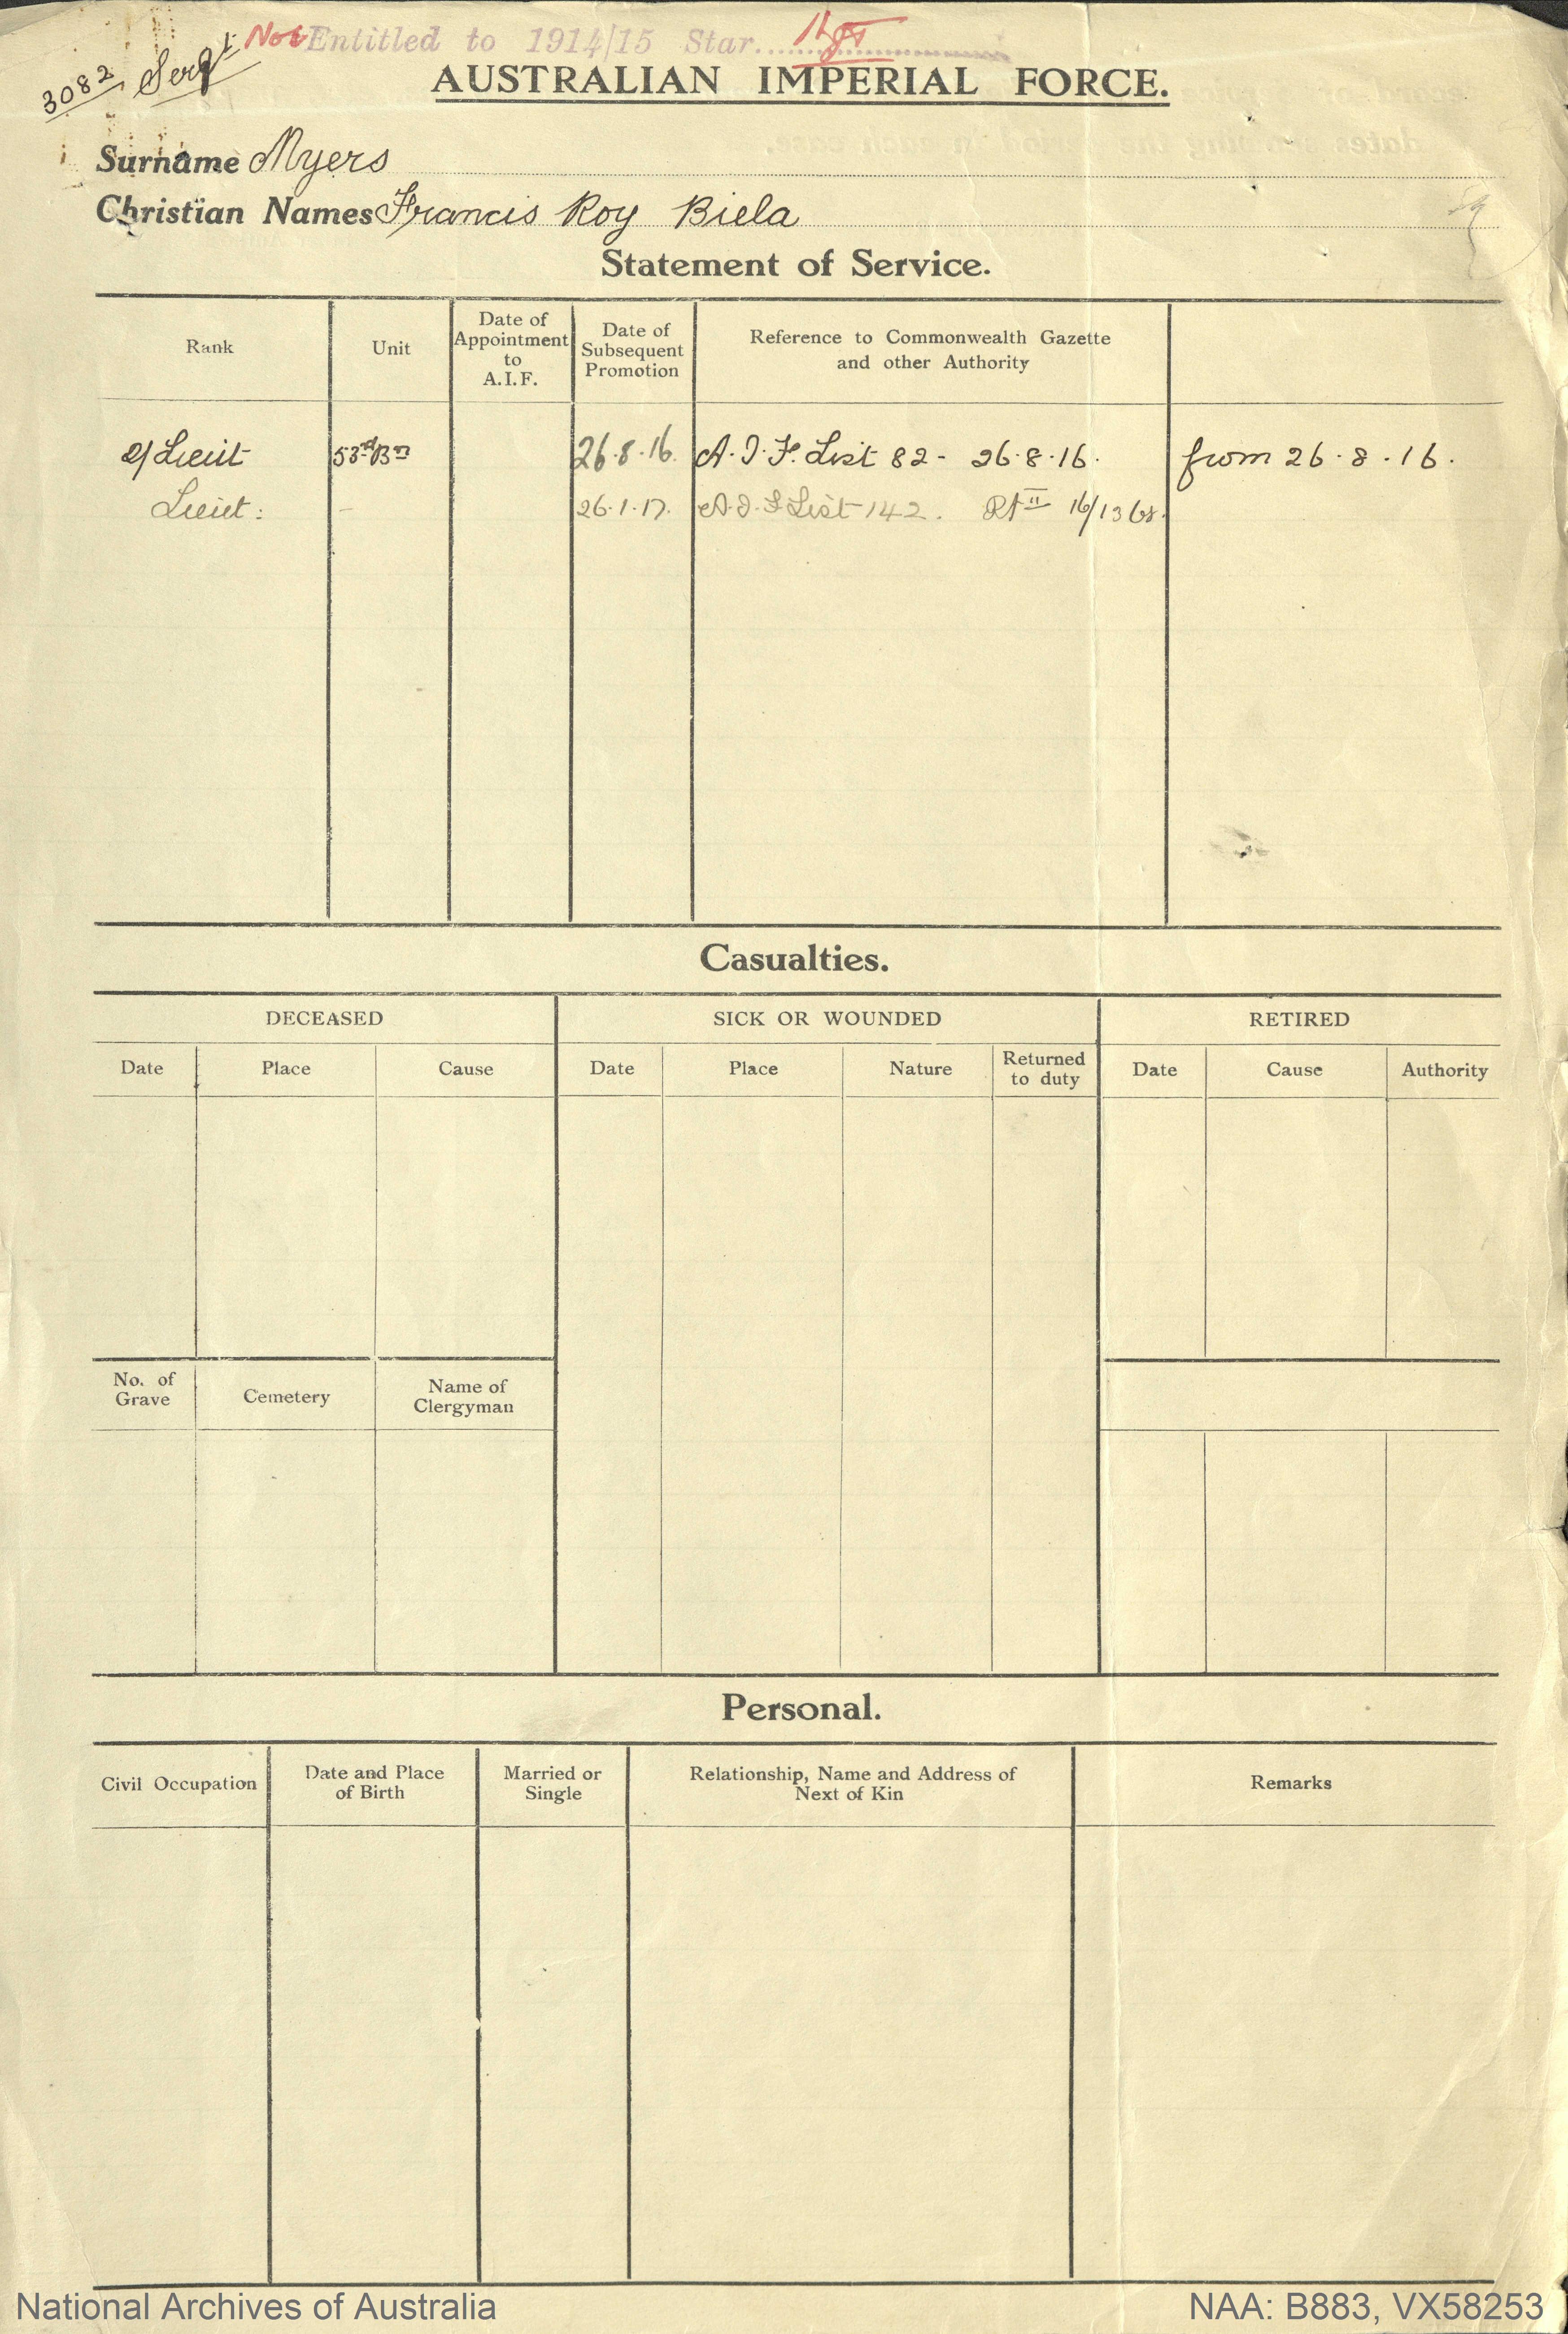 Not Entitled to 1914/15 Star
3082 Sergt
AUSTRALIAN IMPERIAL FORCE.
Surname Myers
Christian Names Francis Roy Biela
Statement of Service.
Rank
Unit
Date of
Appointment
to
A.I.F.
Date of
Subsequent
Promotion
Reference to Commonwealth Gazette
and other Authority
2/Lieut 53rd Bn 26.8.16. A.I.F. List 82 - 26.8.16. from 26.8.16.
Lieut: - 26.1.17. A.I.F List 142. Pt II 16/13
Casualties.
DECEASED
SICK OR WOUNDED
RETIRED
Date
Place
Cause
Date
Place
Nature
Returned
to duty
Date
Cause
Authority
No. of
Grave
Cemetery
Name of
Clergyman
Personal.
Civil Occupation
Date and Place
of Birth
Married or
Single
Relationship, Name and Address of
Next of Kin
Remarks
National Archives of Australia
NAA: B883, VX58253